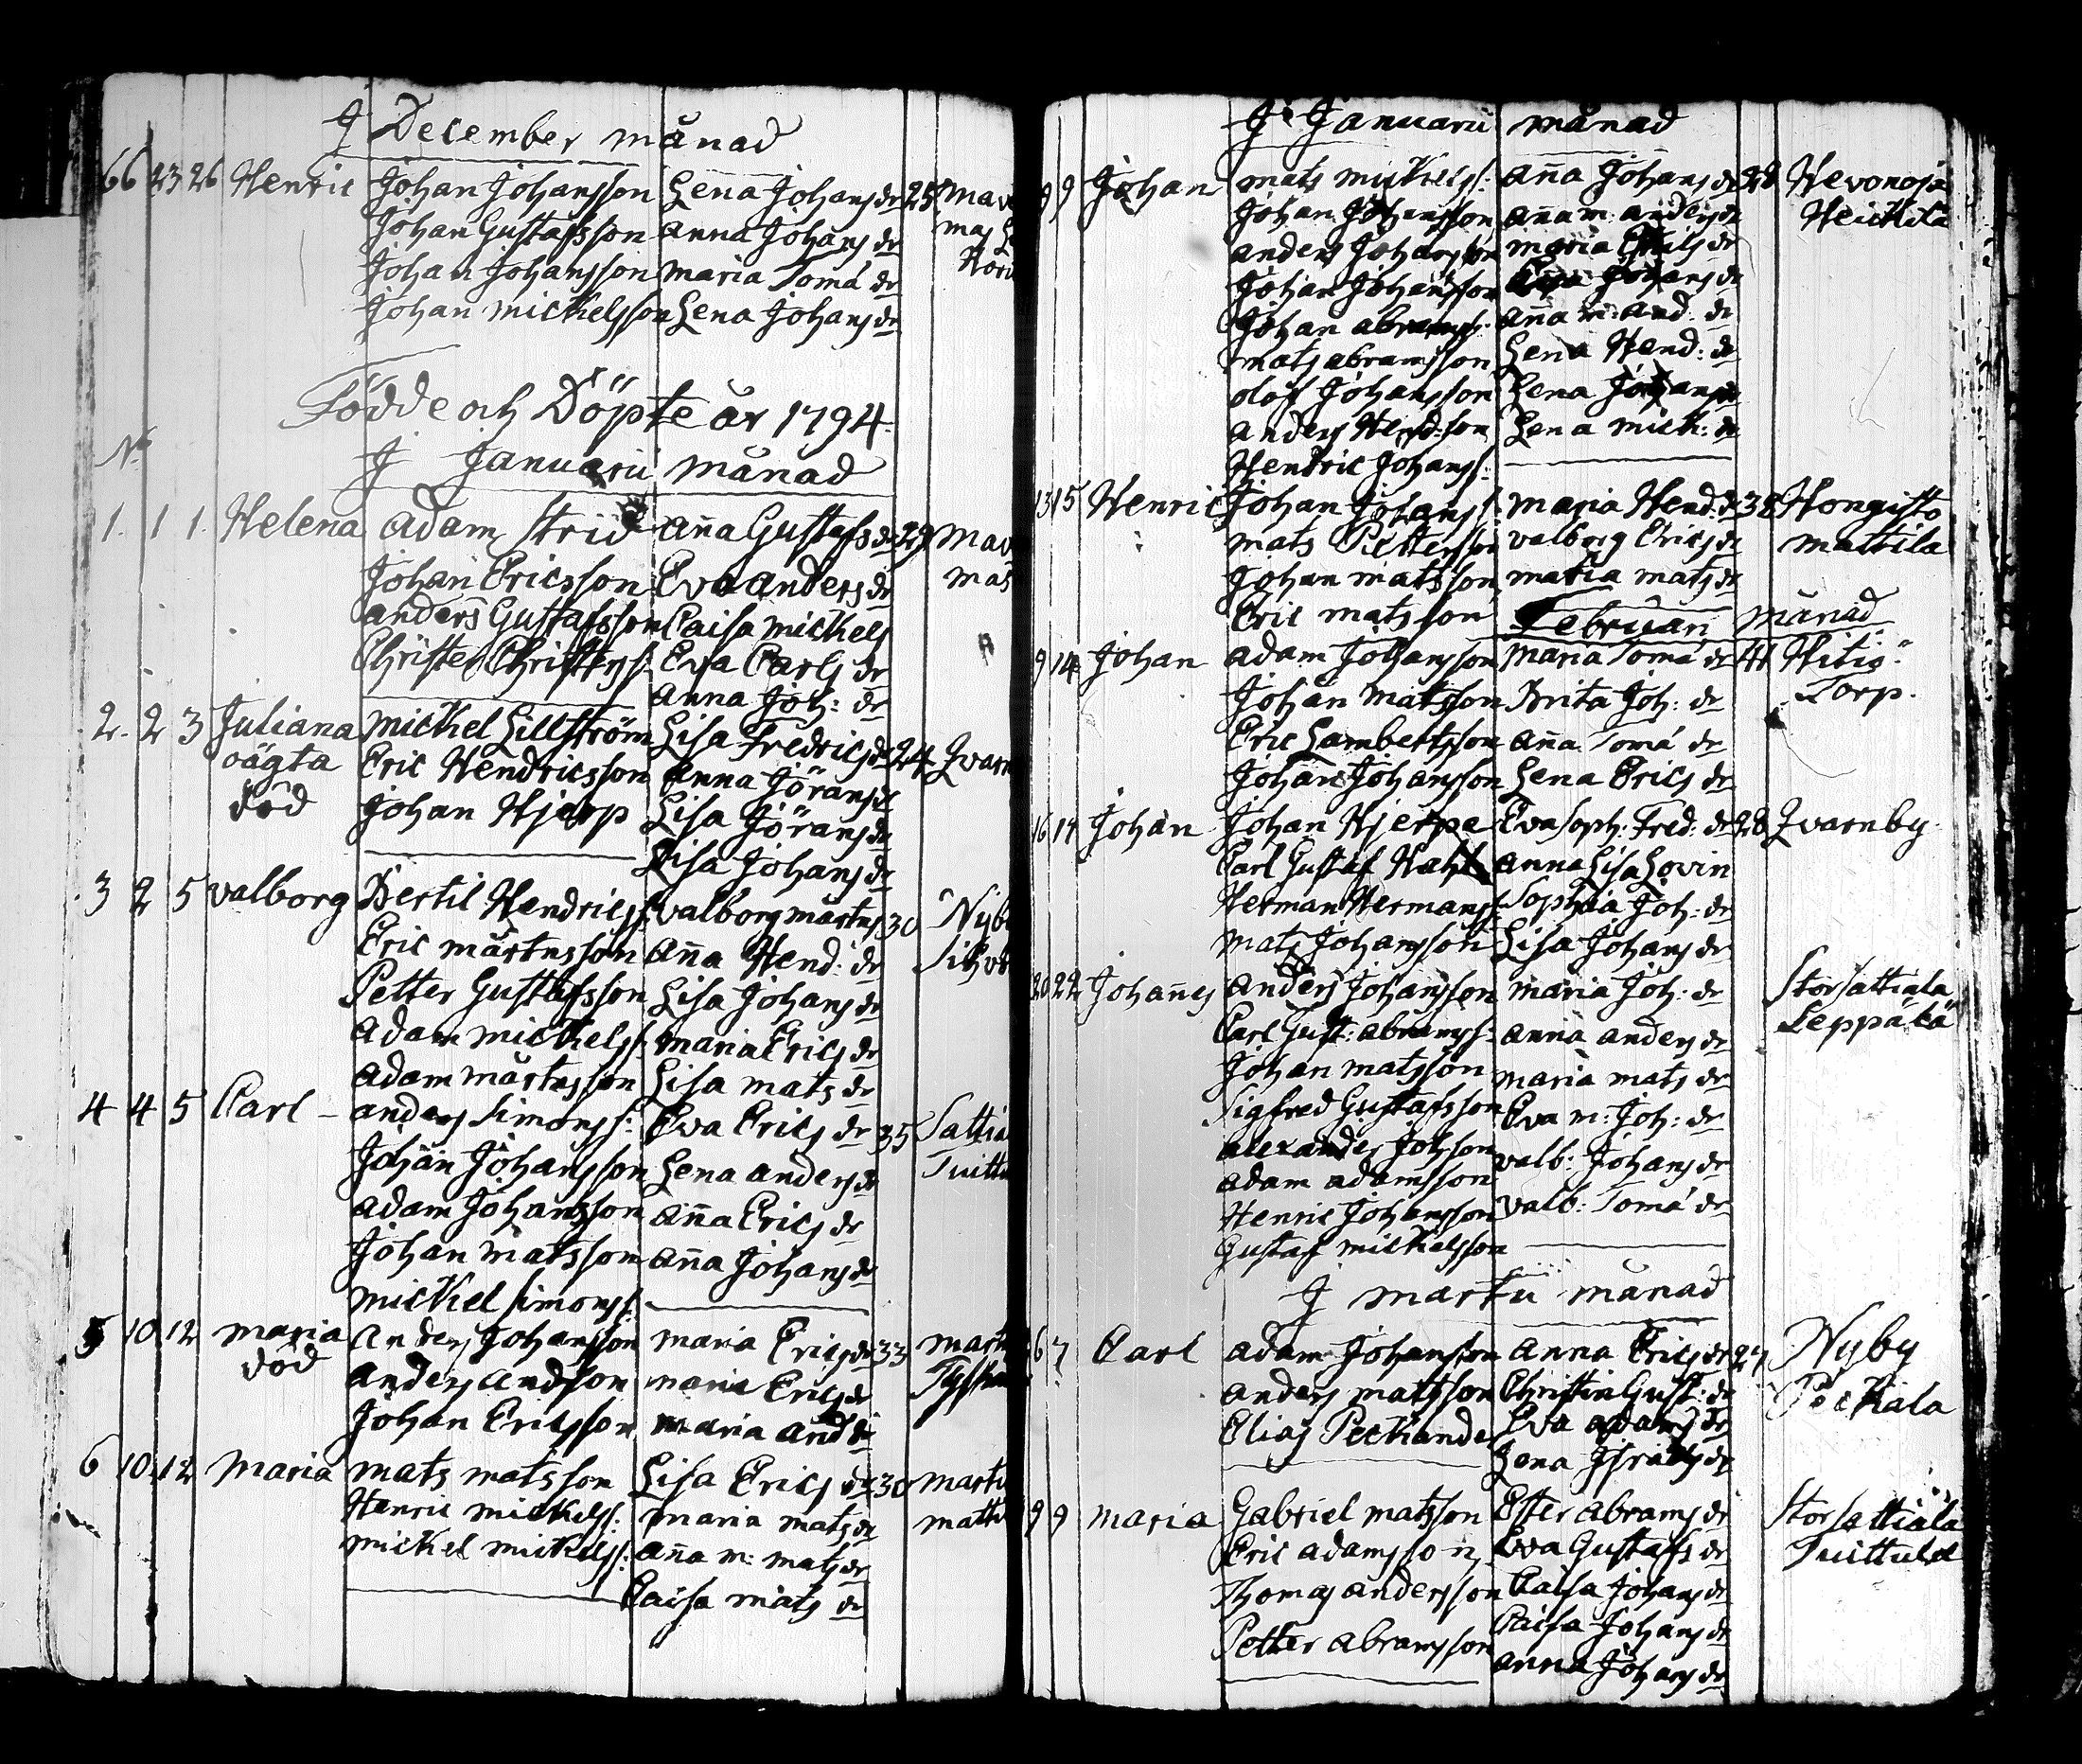 J December månad
66 23 26 Henric Johan Johansson Lena Johans dr 25 Mav
Johan Gustafsson Anna Johans dr mas
Johan Johansson Maria Tomä dr
Johan Mickelsson Lena Johans dr
Födde och Döpte år 1794.
No
J Januarii Månad
1. 1 1. Helena Adam Strid Aña Gustafs dr 29 Mav
Johan Ericsson Eva Anders dr mas
Anders Gustafsson Caisa Mickels
Christer Christerss: Eva Carls dr
Anna Joh: dr
2. 2 3 Juliana Mickel Lillström Lisa Fredrics dr 24 Qvarn
oägta Eric Hendricsson Anna Jörans dr
död Johan Hjerp Lisa Jörans dr
Lisa Johans dr
3 2 5 Valborg Bertil Hendricss: Valborg Mårtns 30 Nyb
Eric Mårtnsson Aña Hend: dr
Petter Gustafsson Lisa Johans dr
Adam Mickelss: Maria Erics dr
Adam Mårtnsson Lisa Mats dr
4 4 5 Carl – Anders Simonss: Eva Erics dr 35 Sattia
Johan Johansson Lena Anders dr Tuittu
Adam Johansson Aña Erics dr
Johan Matsson Aña Johans dr
Mickel Simonss:
5 10 12 Maria Anders Johansson Maria Erics dr 33 Mart
död Anders Andsson Maria Erics dr
Johan Ericsson Maria And dr
6 10 12 Maria Mats Matsson Lisa Erics dr 30 Marti
Henric Mickelss: Maria Mats dr matti
Mickel Mickelss: Aña M: Mats dr
Caisa Mats dr
J Januarii Månad
9 9 Johan Mats Mickelss: Aña Johans dr 28 Hevonoja
Johan Johansson Aña M: Anders dr Heickilä
Anders Johansson Maria dr
Johan Johansson Johans dr
Johan Abramss: Aña M: And: dr
Mats Abramsson Lena Hend: dr
Olof Johansson Lena Johans dr
Anders Hend:son Lena Mick: dr
Hendric Johanss:
13 15 Henric Johan Johanss: Maria Hend: dr 38 Hongisto
Mats Pettersson Valborg Erics dr Mattila
Johan Matsson Maria Mats dr
Eric Matsson Februari Månad
9 14 Johan Adam Johansson Maria Tomä dr 41 Hitis
Johan Matsson Brita Joh: dr Torp.
Eric Lambertsson Aña Tomä dr
Johan Johansson Lena Erics dr
16 17 Johan Johan Hjerpe Eva Soph: Fred: dr 28 Qvarnby.
Carl Gustaf Anna Lisa Lovin
Herman Hermanss: Sophia Joh: dr
Mats Johansson Lisa Johans dr
20 22 Johañes Anders Johansson Maria Joh: dr Storsattiala
Carl Gust: Abramss: Anna Anders dr
Johan Matsson Maria Mats dr
Sigfred Gustafsson Eva M: Joh: dr
Alexander Johsson Valb: Johans dr
Adam Adamsson Valb: Tomä dr
Henric Johansson
Gustaf Mickelsson
J Martii Månad
6 7 Carl Adam Johansson Anna Erics dr 27 Nyby
Anders Matsson Christin Gust: dr Peckala
Elias Peckander Eva Adams dr
Lena Israels dr
9 9 Maria Gabriel Matsson Ester Abrams dr Storsattiala
Eric Adamsson Eva Gustafs dr Tuittula
Thomas Andersson Caisa Johans dr
Petter Abramsson Caisa Johans dr
Anna Johans dr